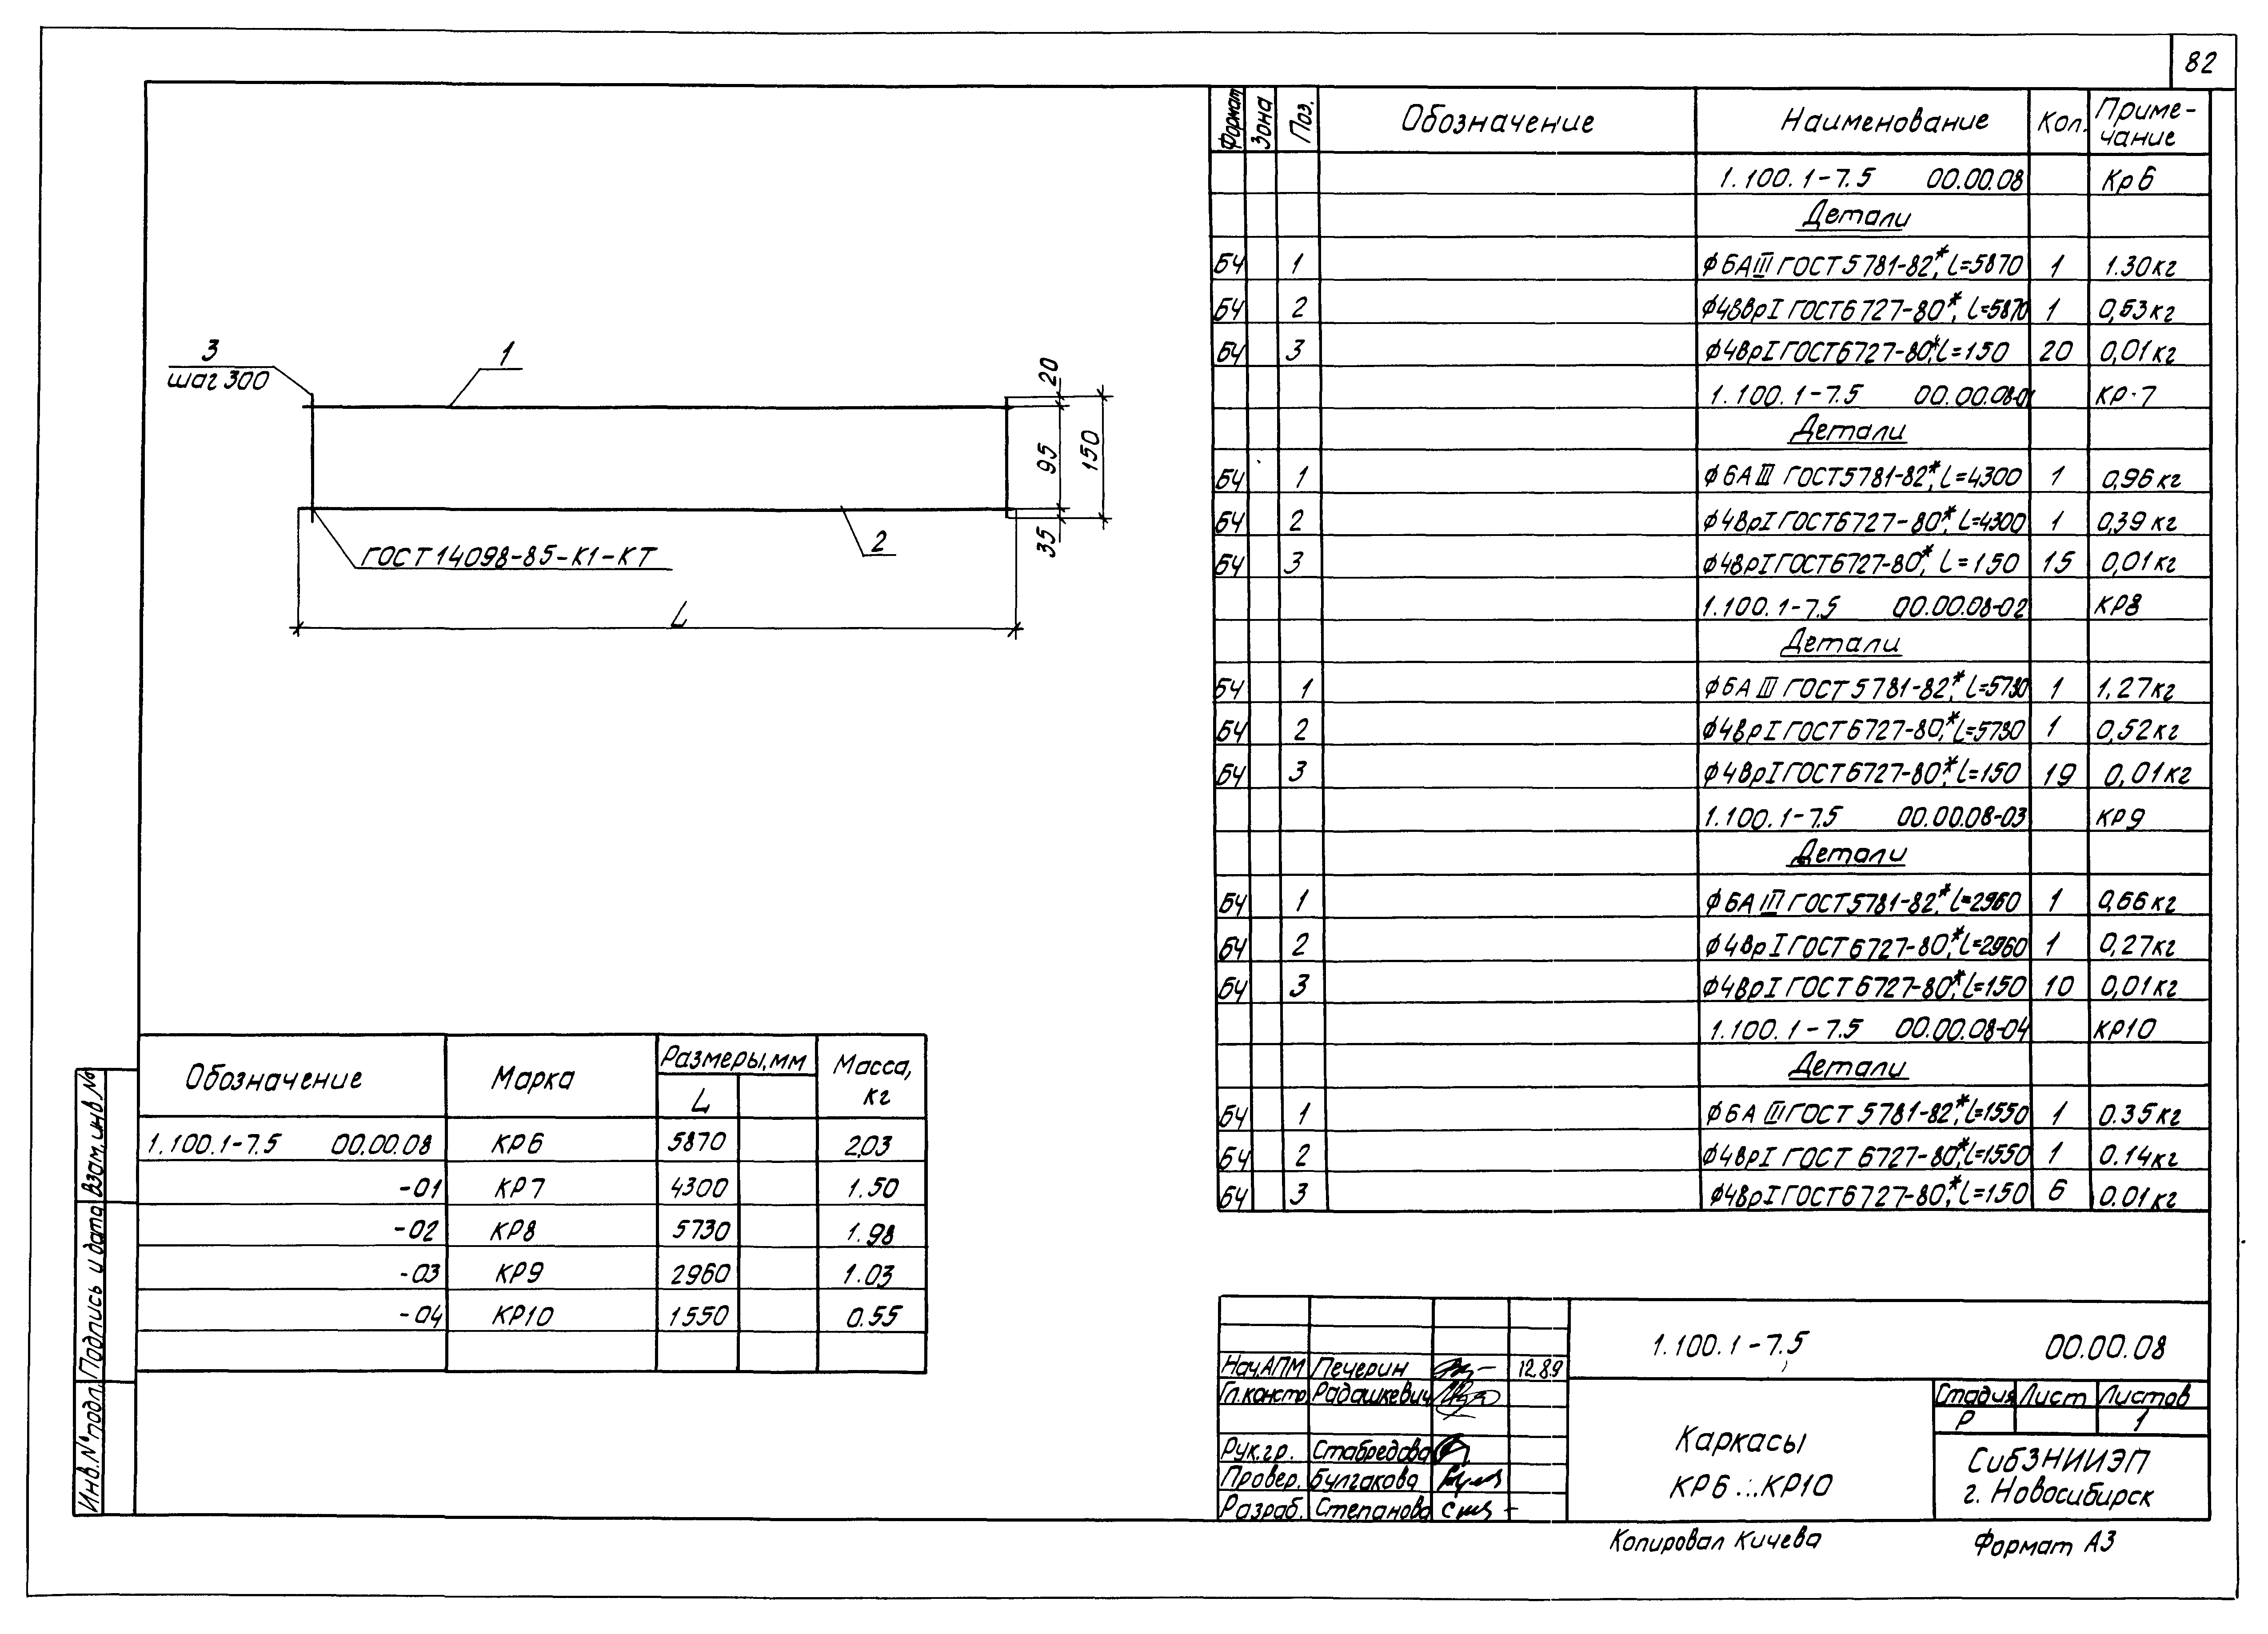 82
3
шаг 300
1
20
95
150
35
2
ГОСТ 14098-85-К1-КТ
L
Формат Зона Поз. Обозначение Наименование Кол. Приме-
чание
1.100.1-7.5 00.00.08 Кр6
Детали
БЧ 1 ϕ6АIII ГОСТ 5781-82*, l=5870 1 1.30кг
БЧ 2 ϕ4ВВрI ГОСТ 6727-80*, l=5870 1 0,53кг
БЧ 3 ϕ4ВрI ГОСТ 6727-80*, l=150 20 0,01кг
1.100.1-7.5 00.00.08-01 КР-7
Детали
БЧ 1 ϕ6АIII ГОСТ 5781-82*, l=4300 1 0,96кг
БЧ 2 ϕ4ВрI ГОСТ 6727-80*, l=4300 1 0,39кг
БЧ 3 ϕ4ВрI ГОСТ 6727-80*, l=150 15 0,01кг
1.100.1-7.5 00.00.08-02 КР8
Детали
БЧ 1 ϕ6АIII ГОСТ 5781-82*, l=5730 1 1,27кг
БЧ 2 ϕ4ВрI ГОСТ 6727-80*, l=5730 1 0,52кг
БЧ 3 ϕ4ВрI ГОСТ 6727-80*, l=150 19 0,01кг
1.100.1-7.5 00.00.08-03 КР9
Детали
БЧ 1 ϕ6АIII ГОСТ 5781-82*, l=2960 1 0,66кг
БЧ 2 ϕ4ВрI ГОСТ 6727-80*, l=2960 1 0,27кг
БЧ 3 ϕ4ВрI ГОСТ 6727-80*, l=150 10 0,01кг
1.100.1-7.5 00.00.08-04 КР10
Детали
БЧ 1 ϕ6АIII ГОСТ 5781-82*, l=1550 1 0.35кг
БЧ 2 ϕ4ВрI ГОСТ 6727-80*, l=1550 1 0.14кг
БЧ 3 ϕ4ВрI ГОСТ 6727-80*, l=150 6 0.01кг
Обозначение Марка Размеры, мм Масса,
L кг
1.100.1-7.5 00.00.08 КР6 5870 2,03
-01 КР7 4300 1.50
-02 КР8 5730 1.98
-03 КР9 2960 1.03
-04 КР10 1550 0.55
Взам. инв. №
Подпись и дата
Инв. № подл.
Нач. АПМ Печерин 12.89
Гл. констр. Радашкевич
Рук. гр. Стабредова
Провер. Булгакова
Разраб. Степанова
1.100.1-7.5 00.00.08
Каркасы
КР6...КР10
Стадия Лист Листов
Р 1
СибЗНИИЭП
г. Новосибирск
Копировал Кичева Формат А3